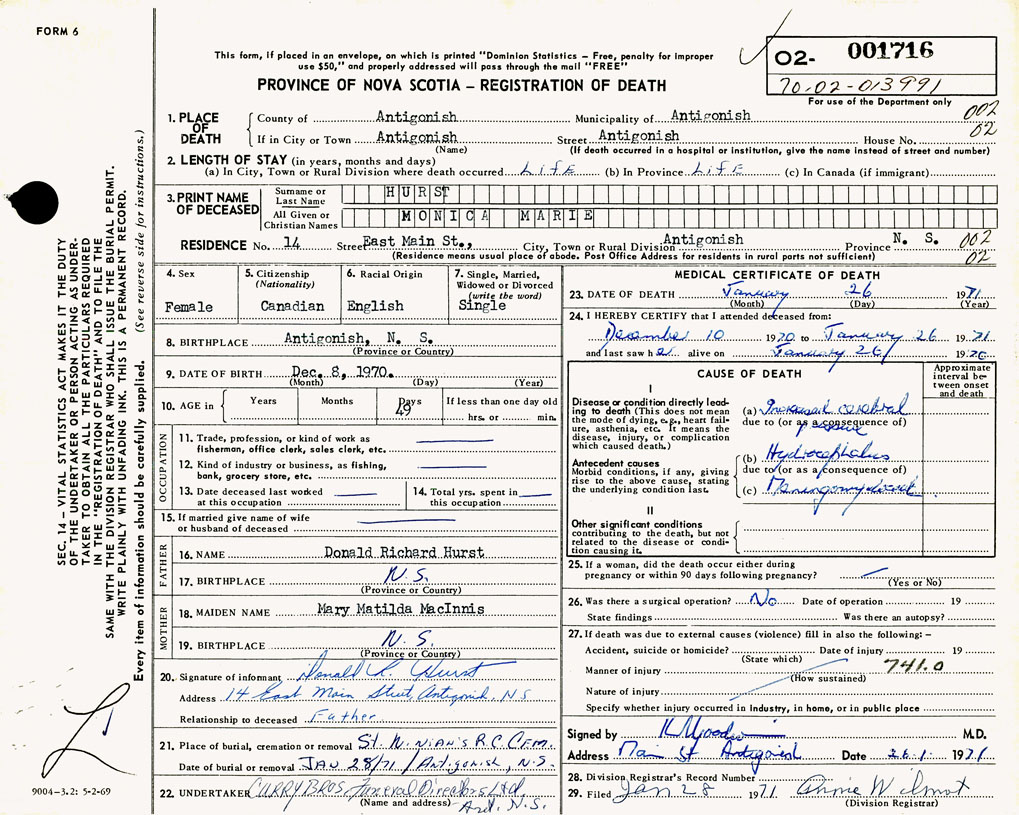 FORM 6
This form, if placed in an envelope, on which is printed "Dominion Statistics – Free, penalty for improper
use $50," and properly addressed will pass through the mail "FREE"
PROVINCE OF NOVA SCOTIA – REGISTRATION OF DEATH
02- 001716
70-02-013991
For use of the Department only
002
02
1. PLACE OF DEATH
County of Antigonish Municipality of Antigonish
If in City or Town Antigonish Street Antigonish House No.
(Name) (If death occurred in a hospital or institution, give the name instead of street and number)
2. LENGTH OF STAY (in years, months and days)
(a) In City, Town or Rural Division where death occurred Life (b) In Province Life (c) In Canada (if immigrant)
3. PRINT NAME OF DECEASED
Surname or Last Name HURST
All Given or Christian Names MONICA MARIE
RESIDENCE No. 14 Street East Main St., City, Town or Rural Division Antigonish Province N. S. 002
02
(Residence means usual place of abode. Post Office Address for residents in rural parts not sufficient)
4. Sex
Female
5. Citizenship
(Nationality)
Canadian
6. Racial Origin
English
7. Single, Married,
Widowed or Divorced
(write the word)
Single
8. BIRTHPLACE Antigonish, N. S.
(Province or Country)
9. DATE OF BIRTH Dec. 8, 1970.
(Month) (Day) (Year)
10. AGE in Years Months Days If less than one day old
49
hrs. or min.
OCCUPATION
11. Trade, profession, or kind of work as
fisherman, office clerk, sales clerk, etc.
12. Kind of industry or business, as fishing,
bank, grocery store, etc.
13. Date deceased last worked
at this occupation
14. Total yrs. spent in
this occupation
15. If married give name of wife
or husband of deceased
FATHER
16. NAME Donald Richard Hurst
17. BIRTHPLACE N.S.
(Province or Country)
MOTHER
18. MAIDEN NAME Mary Matilda MacInnis
19. BIRTHPLACE N.S.
(Province or Country)
20. Signature of informant Donald R. Hurst
Address 14 East Main Street, Antigonish, N.S
Relationship to deceased Father
21. Place of burial, cremation or removal St. Ninian's R.C. Cem.
Date of burial or removal JAN 28/71 / Antigonish, N.S.
22. UNDERTAKER CURRY BROS. Funeral Directors Ltd.
(Name and address) Ant. N.S.
MEDICAL CERTIFICATE OF DEATH
23. DATE OF DEATH January 26 1971
(Month) (Day) (Year)
24. I HEREBY CERTIFY that I attended deceased from:
December 10 1970 to January 26 1971
and last saw her alive on January 26 1970
CAUSE OF DEATH
Approximate
interval be-
tween onset
and death
I
Disease or condition directly lead-
ing to death (This does not mean
the mode of dying, e.g., heart fail-
ure, asthenia, etc. It means the
disease, injury, or complication
which caused death.)
(a) Increased cerebral
pressure
due to (or as a consequence of)
Antecedent causes
Morbid conditions, if any, giving
rise to the above cause, stating
the underlying condition last.
(b) Hydrocephalus
due to (or as a consequence of)
(c) Meningomyelocele
II
Other significant conditions
contributing to the death, but not
related to the disease or condi-
tion causing it.
25. If a woman, did the death occur either during
pregnancy or within 90 days following pregnancy?
(Yes or No)
26. Was there a surgical operation? No Date of operation 19
State findings Was there an autopsy?
27. If death was due to external causes (violence) fill in also the following: –
Accident, suicide or homicide? Date of injury 19
(State which)
Manner of injury 741.0
(How sustained)
Nature of injury
Specify whether injury occurred in industry, in home, or in public place
Signed by M.D.
Address Main St Antigonish Date 26.1. 1971
28. Division Registrar's Record Number
29. Filed Jan 28 1971 Annie Wilmot
(Division Registrar)
SEC. 14 – VITAL STATISTICS ACT MAKES IT THE DUTY
OF THE UNDERTAKER OR PERSON ACTING AS UNDER-
TAKER TO OBTAIN ALL THE PARTICULARS REQUIRED
IN THE "REGISTRATION OF DEATH" AND TO FILE THE
SAME WITH THE DIVISION REGISTRAR WHO SHALL ISSUE THE BURIAL PERMIT.
WRITE PLAINLY WITH UNFADING INK. THIS IS A PERMANENT RECORD.
Every item of information should be carefully supplied. (See reverse side for instructions.)
9004-3.2: 5-2-69